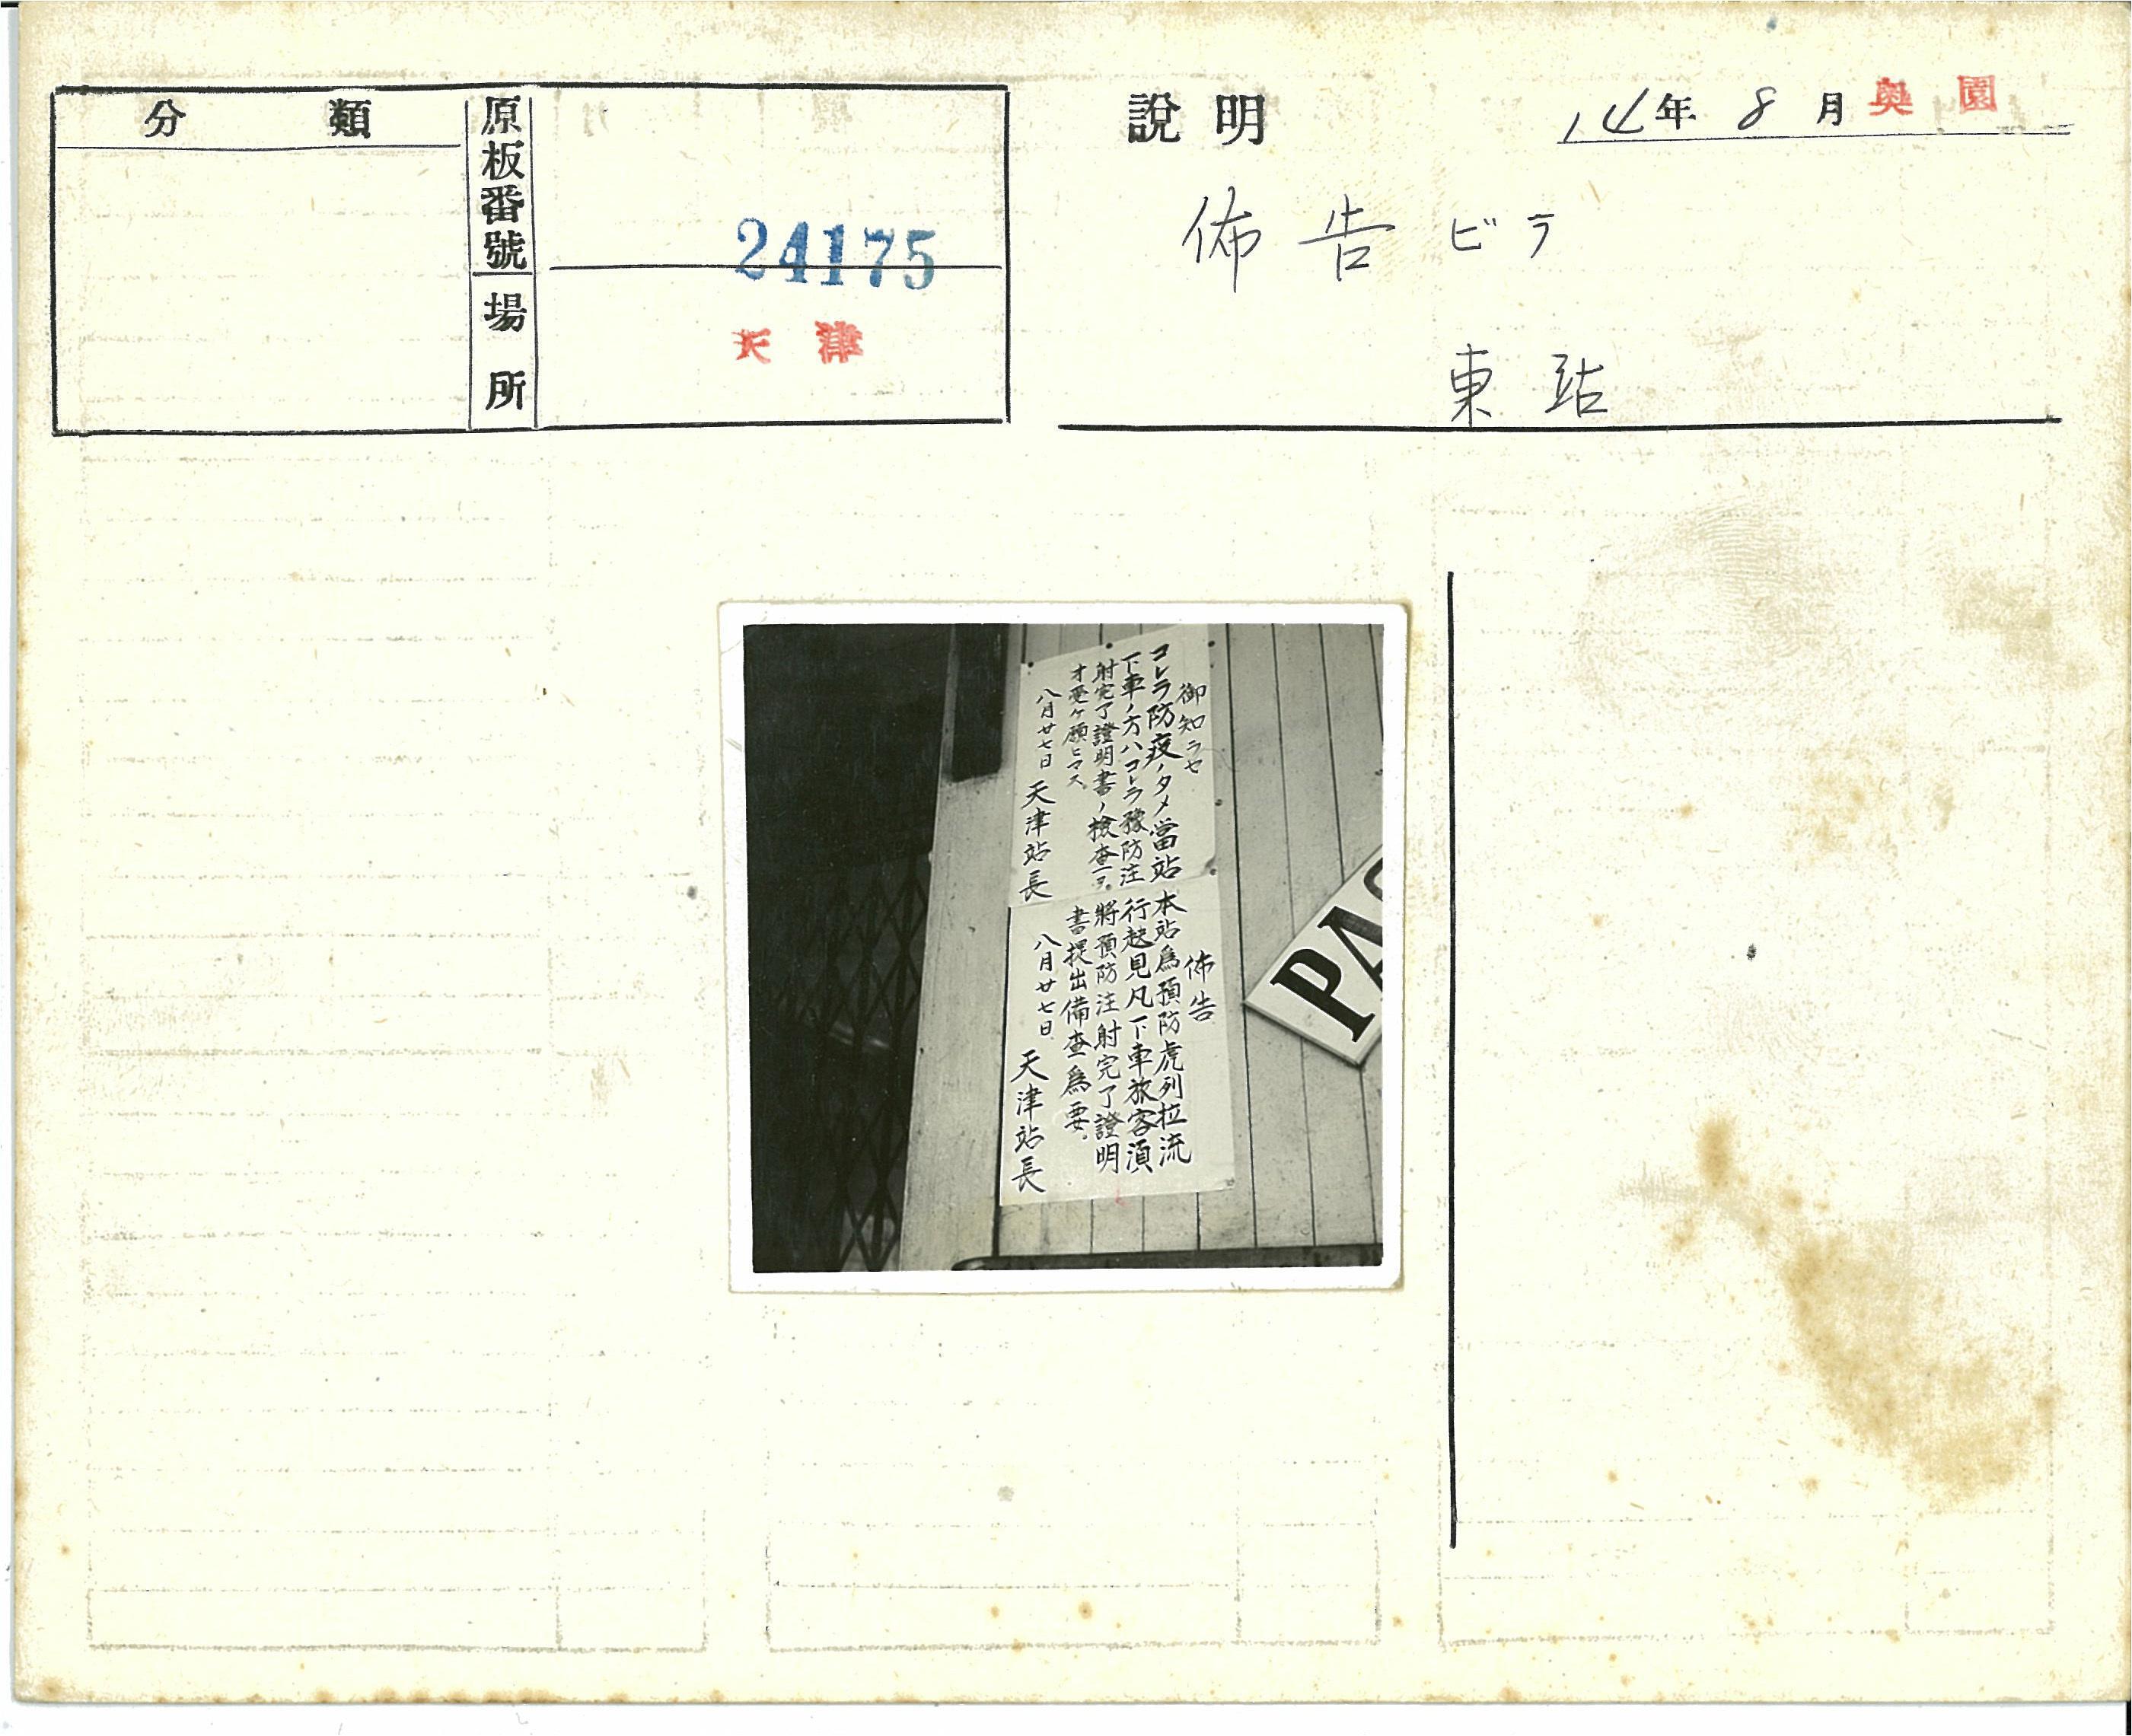 分類
原板番號
24175
場所
天津
說明
14年8月 奥園
佈告ビラ
東站
御知ラセ
コレラ防疫ノタメ當站
下車ノ方ハコレラ豫防注
射完了證明書ノ檢査ヲ
オ受ケ願ヒマス
八月廿七日 天津站長
佈告
本站爲預防虎列拉流
行起見凡下車旅客須
將預防注射完了證明
書提出備査爲要。
八月廿七日 天津站長